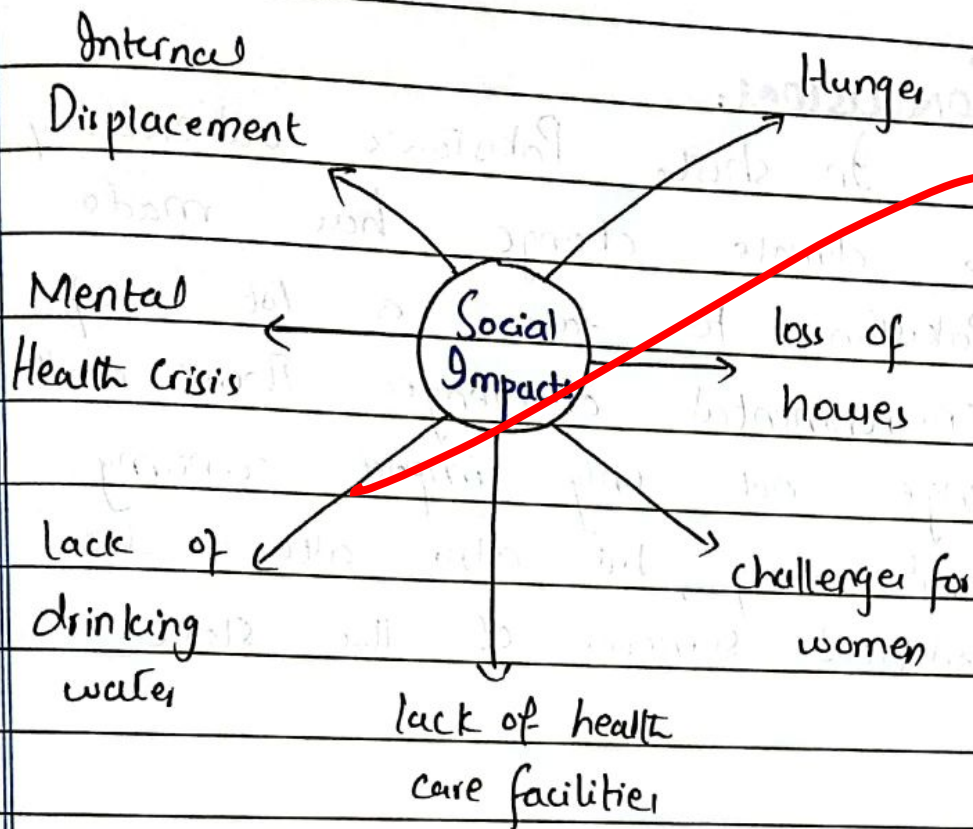 Internal
Displacement
Hunger
Mental
Health Crisis
Social
Impacts
loss of
houses
lack of
drinking
water
challenges for
women
lack of health
care facilities